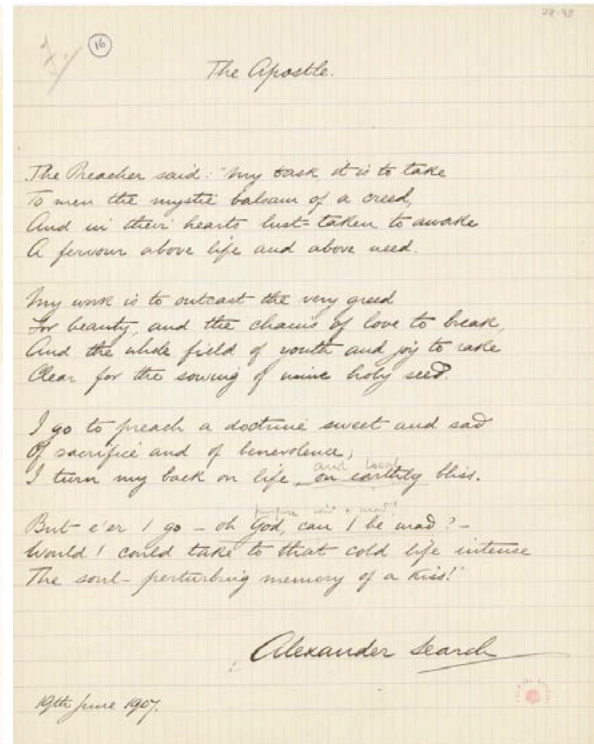 78-45
16
The Apostle.
The Preacher said: "My task it is to take
To men the mystic balsam of a creed,
And in their hearts lust-taken to awake
A fervour above life and above need.
My work is to outcast the very greed
For beauty, and the chains of love to break,
And the whole field of youth and joy to rake
Clear for the sowing of mine holy seed.
I go to preach a doctrine sweet and sad
Of sacrifice and of benevolence;
and
I turn my back on life, on earthly bliss.
But e'er I go — oh God, can I be mad? —
Would I could take to that cold life intense
The soul-perturbing memory of a kiss!"
Alexander Search
19th June 1907.